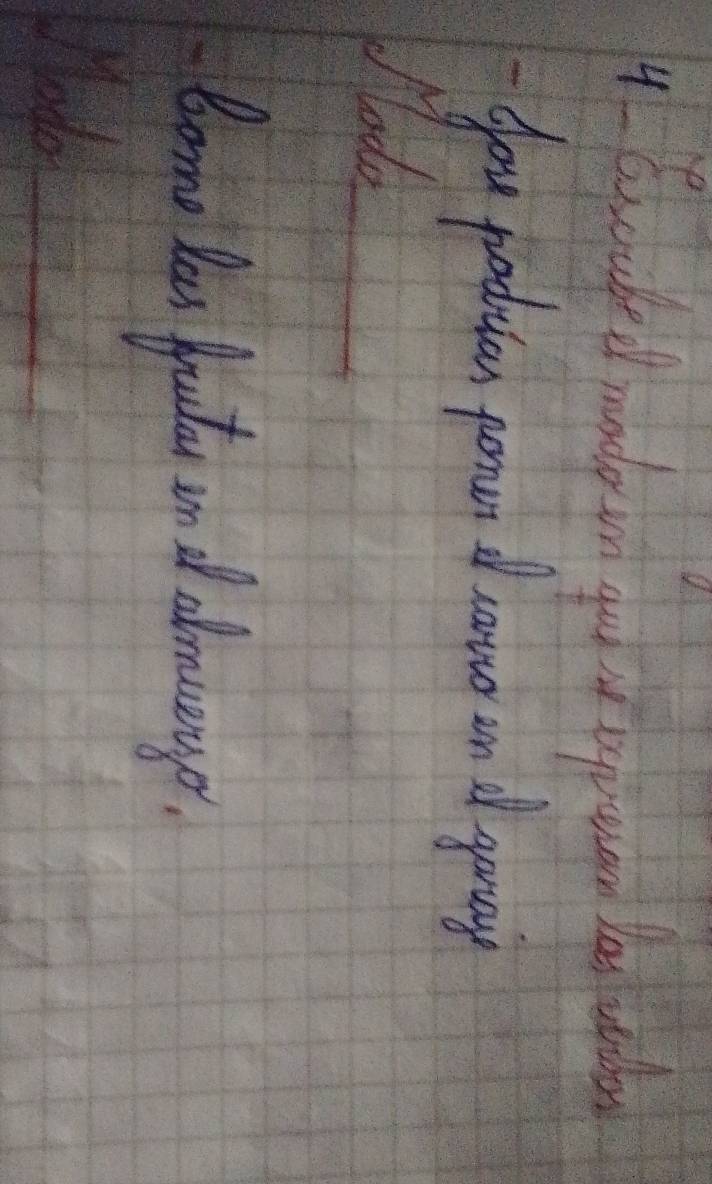 4 - Escribe el modo en que se expresan los verbos
- José podrías poner el carro en el garaje
Modo
- Come las frutas en el almuerzo,
Modo